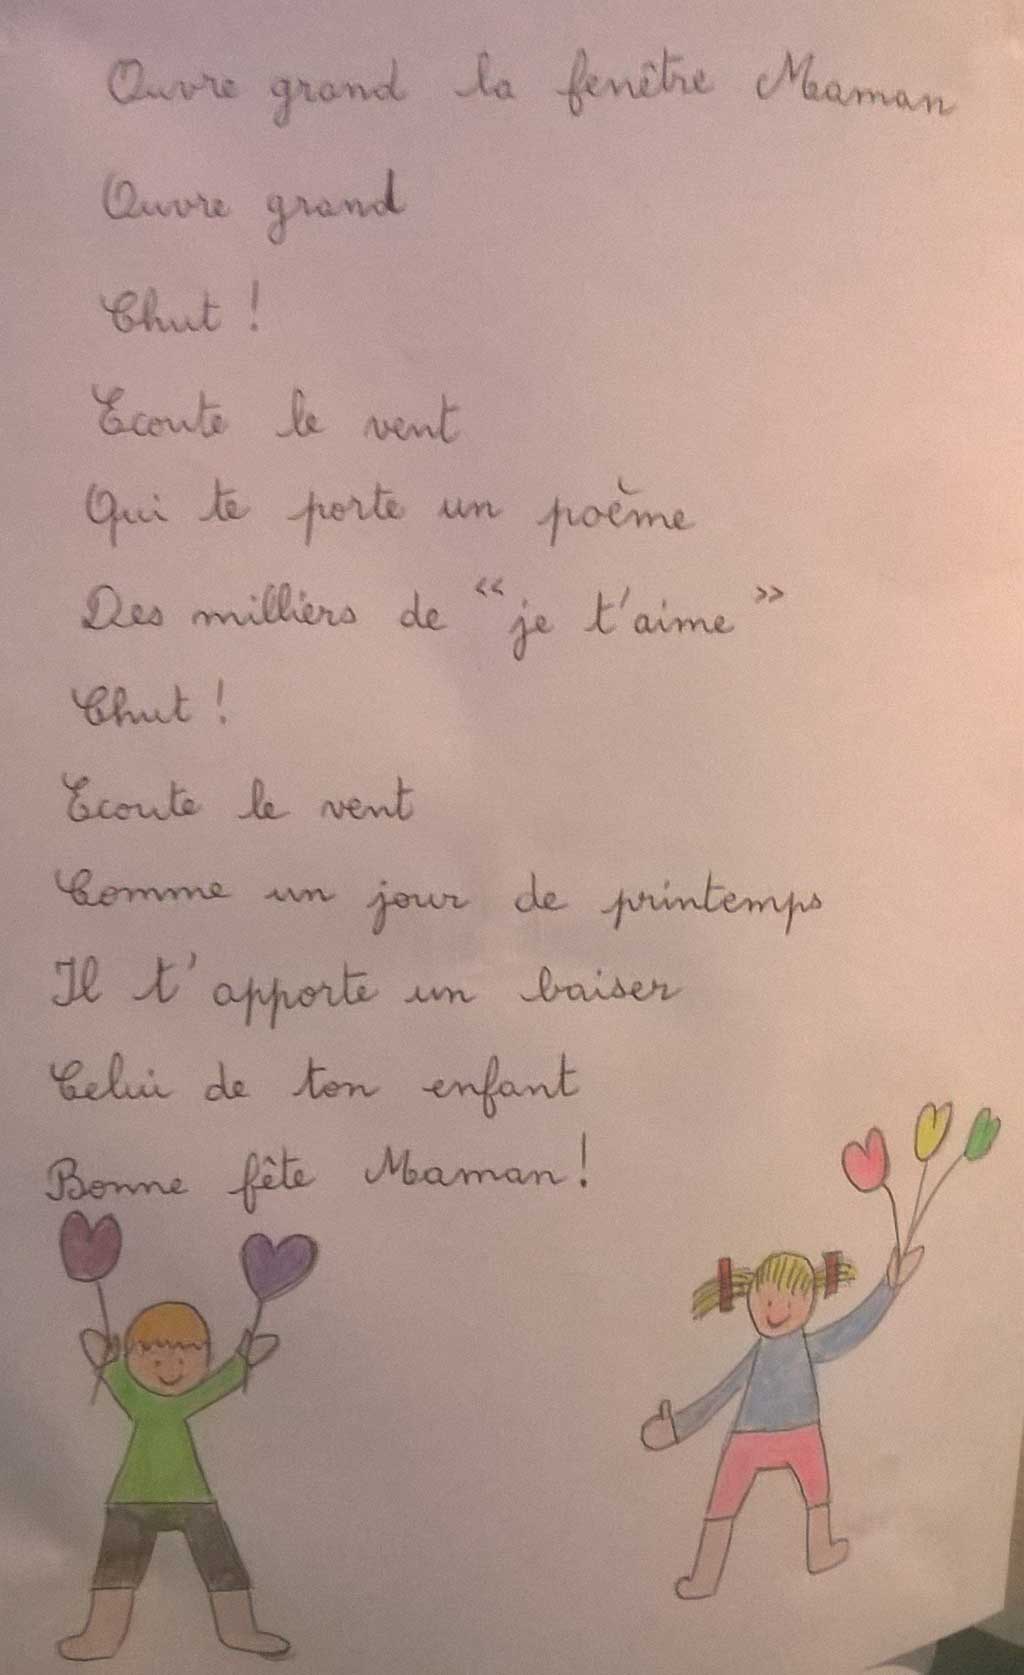 Ouvre grand la fenêtre Maman
Ouvre grand
Chut !
Ecoute le vent
Qui te porte un poème
Des milliers de "je t'aime"
Chut !
Ecoute le vent
Comme un jour de printemps
Il t'apporte un baiser
Celui de ton enfant
Bonne fête Maman !